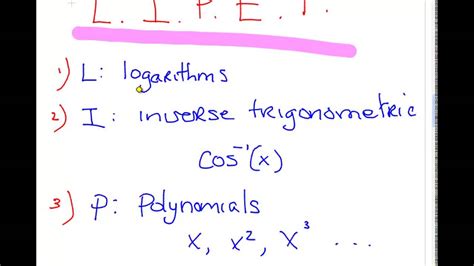 L. I. P. E. T.
1) L: logarithms
2) I: inverse trigonometric
cos⁻¹(x)
3) P: Polynomials
x, x², x³ ...